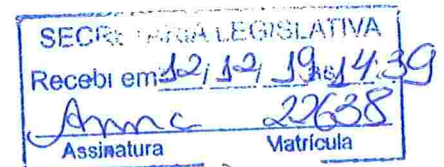 SECRETARIA LEGISLATIVA
Recebi em 12/12/19 às 14:39
Anna 22638
Assinatura Matrícula